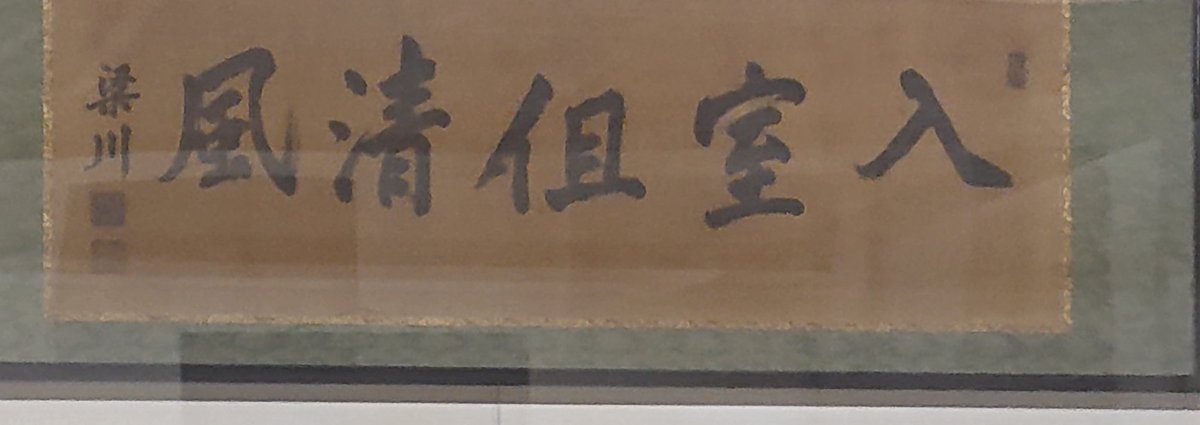 入室伹清風
梁川